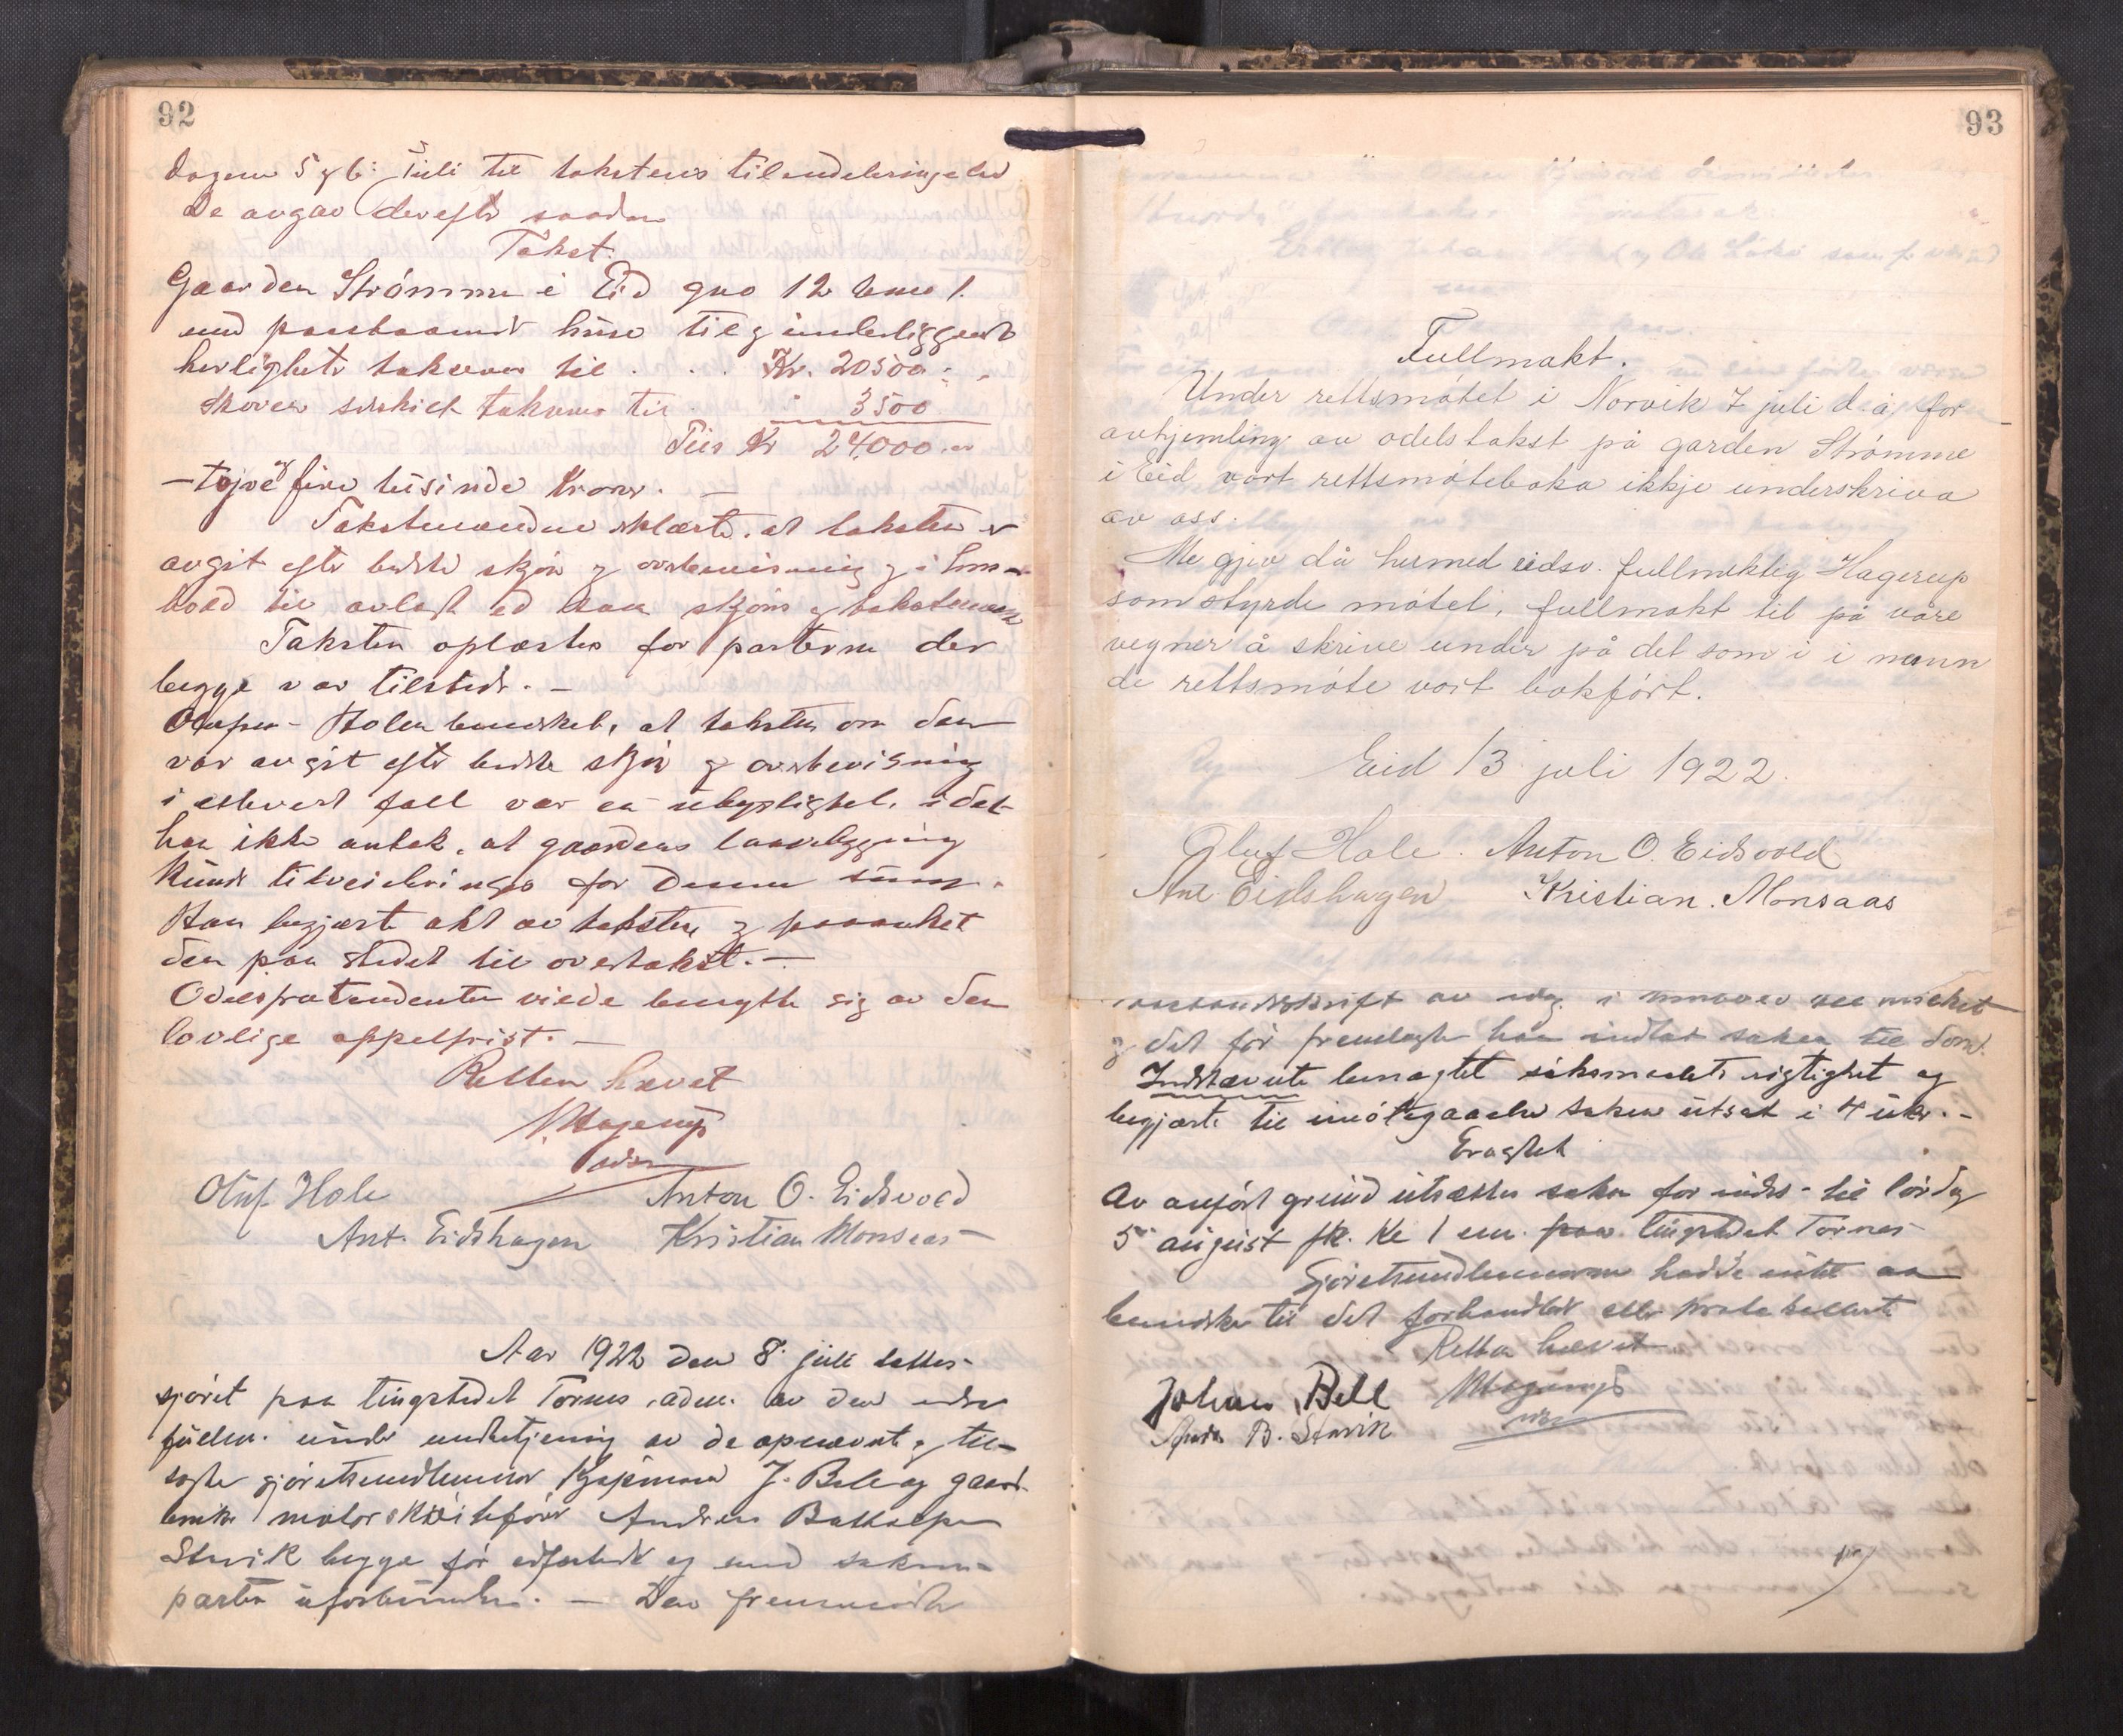 92
dagene 5 & 6: Juli til takstens tilendebringelse
De avgav derefter saadan
Takst:
Gaarden Strømme i Eid gno 12 bno 1.
med paastaaende huse til & underliggende
herligheter takseres til . . . Kr. 20500.-
skoven særskilt takseres til " 3500
Tils Kr 24000.-
- tojve og fire tusinde kroner. -
Takstmændene erklærte, at taksten er
avgit efter bedste skjøn & overbevisning & i hen-
hold til avlagt ed som skjøns & takstmænd
Taksten oplæstes for parterne der
begge var tilstede. -
Holen bemerket, at taksten om den
var avgit efter bedste skjøn & overbevisning
i ethvert fall var en ubyplighet, idet
han ikke antok, at gaardens laanebygging
kunde tilveiebringes for denne sum.
Han begjærte akt av taksten & paaanket
den paa stedet til overtakst. -
Odelsprætendenten vilde benytte sig av den
lovlige appelfrist. -
Retten hævet
Hagerup
edsv
Oluf Hole Anton O. Eidsvold
Ant. Eidshagen Kristian Monsaas
Aar 1922 den 8. juli sattes
sjøret paa tingstedet Tornes, adm. av den edsv
fuldm. under medbetjening av de opnævnte & til-
sagte sjøretsmedlemmer Kjøpmand J. Bell og gaard-
bruker motorskøitefører Andreas
Stavik begge før edfæstede og med sakens
parter uforbundne. - Den fremmøtte
93
Fullmakt.
Under rettsmøtet i Norvik 7 juli d. å. for
avhjemling av odelstakst på garden Strømme
i Eid vart rettsmøteboka ikkje underskriva
av oss.
Me gjev då hermed eidsv. fullmektig Hagerup
som styrde møtet, fullmakt til på våre
vegner å skrive under på det som i i nemn
de rettsmøte vart bokført.
Eid 13 juli 1922.
Oluf Hole. Anton O. Eidsvold
Ant. Eidshagen Kristian. Monsaas
av idag i
& det før fremlagte han indlot saken til dom.
Indstævnte benægtet søksmaalets rigtighet og
begjærte til imøtegaaelse saken utsat i 4 uker. -
Eragtet
Av anført grund utsættes saken for inds- til lørdag
5. august fk. kl 1 em. paa tingstedet Tornes
Sjøretsmedlemmerne hadde intet aa
bemerke til det forhandlede eller protokollerte
Retten hævet
Johan Bell Hagerup
edsv
Andr B. Stavik